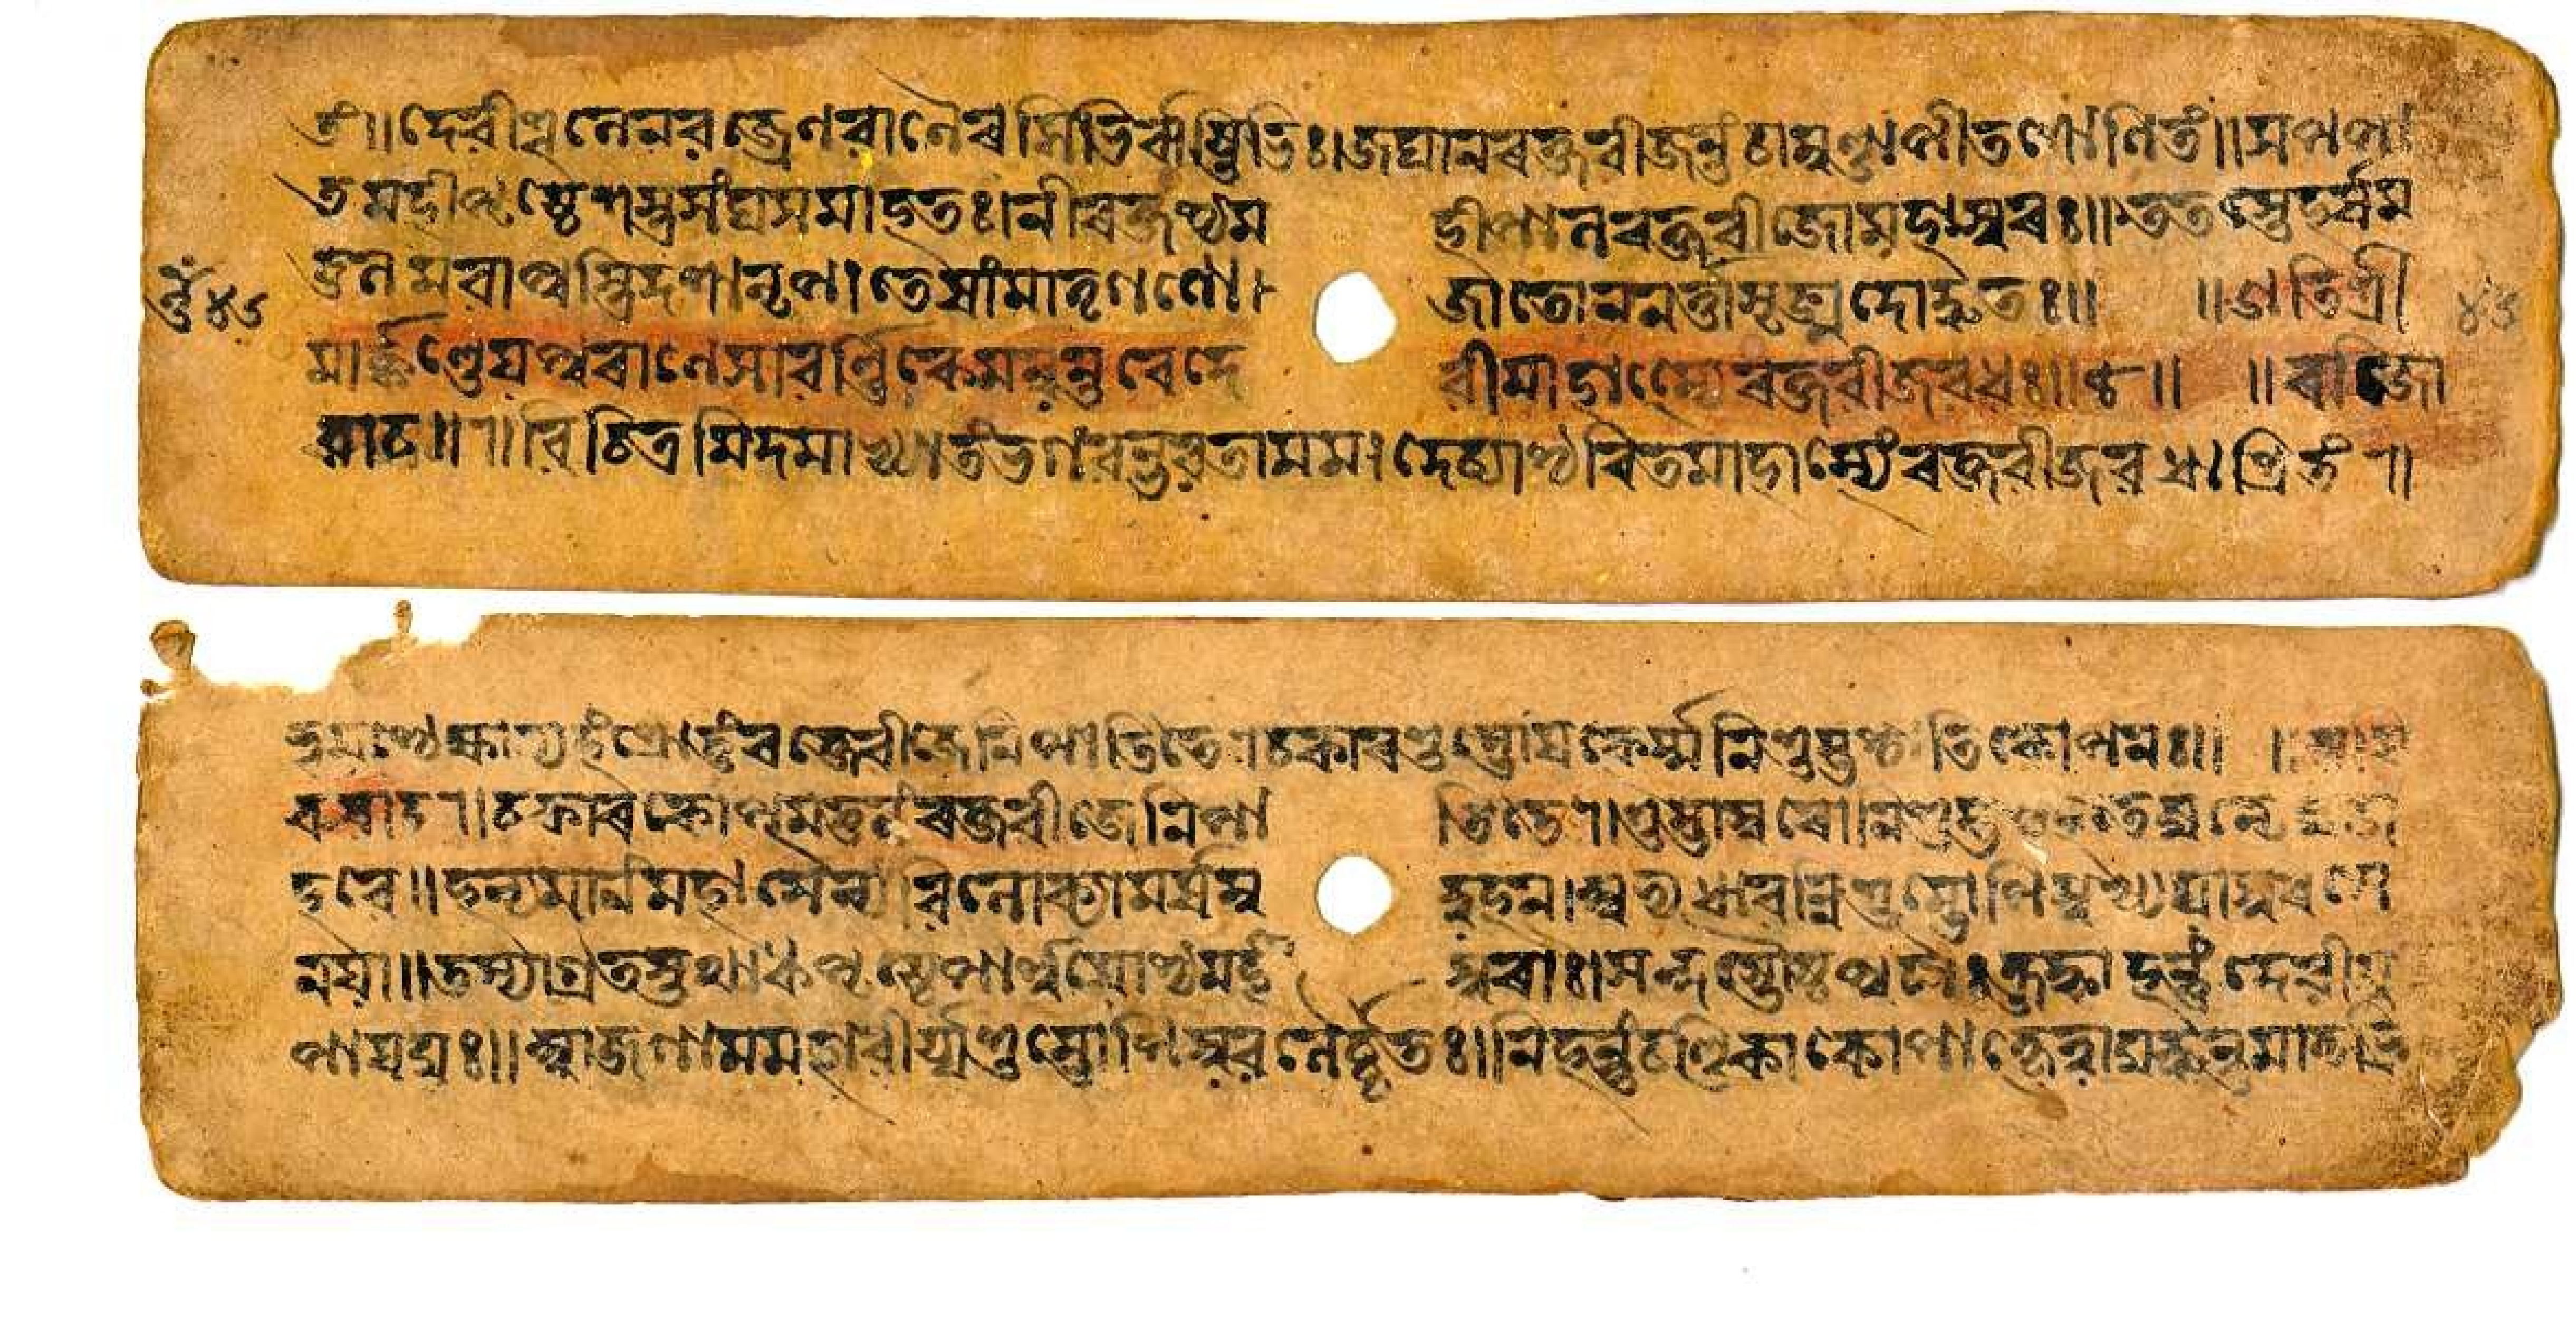 তং॥দেবীশূলেনবজ্রেণবাণৈৰসিভিৰৃষ্টিভিঃ।জঘানৰক্তবীজন্তংচামুণ্ডাপীতশোণিতং॥সপপা
তমহীপৃষ্ঠেশস্ত্রসংঘসমাহতঃ।নীৰক্তশ্চম হীপালৰক্তবীজোমহাসুৰঃ॥ততস্তেহর্ষম
তুলমবাপুস্ত্রিদশানৃপ।তেষাংমাতৃগণো। জাতোননর্ত্তাসৃঙ্মদোদ্ধতঃ॥ ॥ইতিশ্রী
মার্ক্কণ্ডেয়পুৰাণেসাবর্ণ্ণিকেমন্বন্তৰেদে বীমাহাত্ম্যেৰক্তবীজবধঃ॥৮॥ ॥ৰাজো
বাচ॥।॥বিচিত্রমিদমাখ্যাতংভগবন্ভবতামম।দেব্যাশ্চৰিতমাহাত্ম্যংৰক্তবীজবধাশ্রিতং।॥
ভূয়শ্চেচ্ছাম্যহংশ্রোতুংৰক্তেবীজেনিপাতিতে।চকাৰশুম্ভোযৎকর্ম্মনিশুম্ভশ্চাতিকোপনঃ॥
ৰুবাচ।॥চকাৰকোপমতুলংৰক্তবীজেনিপা তিতে।॥শুম্ভাসুৰোনিশুম্ভশ্চহতেষ্বন্যেষুচা
হবে॥হন্যমানংমহাসৈন্যংবিলোক্যামর্ষমু দ্বহন।অভ্যধাবন্নিশুম্ভোপিমুখ্যয়াসুৰসে
নয়া॥তস্যাগ্রতস্তথাপৃষ্ঠেপার্শ্বয়োশ্চমহা সুৰাঃ।সন্দষ্টৌষ্ঠপুটাঃক্রুদ্ধাহন্তুংদেবীমু
পাযযুঃ॥আজগামমহাবীর্য্যশুম্ভোপিস্ববলৈর্ব্বৃতঃ॥নিহন্তুংচণ্ডিকাকোপাৎকৃত্বাযুদ্ধন্তুমাতৃভি